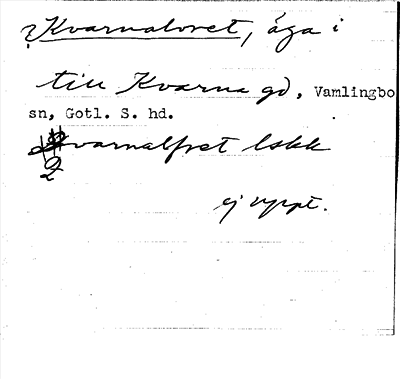 ?Kvarnalvret, äga i
till Kvarna gd, Vamlingbo
sn, Gotl. S. hd.
varnalfret lskk
2
ej uppt.